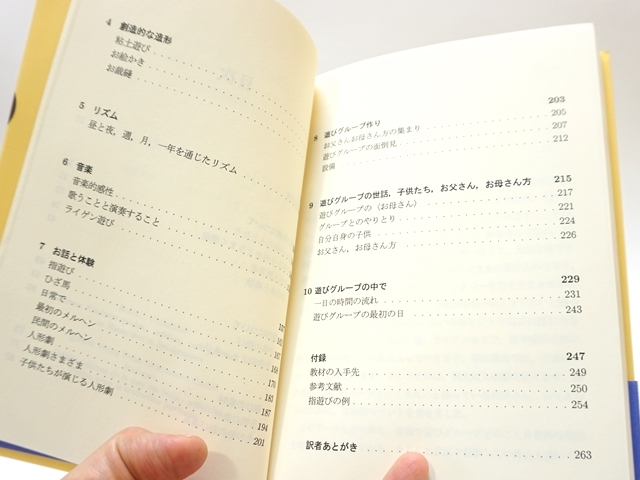 4 創造的な造形
粘土遊び
お絵かき
お裁縫
5 リズム
昼と夜，週，月，一年を通じたリズム
6 音楽
音楽的感性
歌うことと演奏すること
ライゲン遊び
7 お話と体験
指遊び
ひざ馬
日常で
最初のメルヘン
民間のメルヘン
人形劇
人形劇さまざま 187
194
子供たちが演じる人形劇 201
8 遊びグループ作り 203
お父さんお母さん方の集まり 205
遊びグループの面倒見 207
設備 212
9 遊びグループの世話，子供たち，お父さん，お母さん方 215
遊びグループの（お母さん） 217
グループとのやりとり 221
自分自身の子供 224
お父さん，お母さん方 226
10 遊びグループの中で 229
一日の時間の流れ 231
遊びグループの最初の日 243
付録 247
教材の入手先 249
参考文献 250
指遊びの例 254
訳者あとがき 263